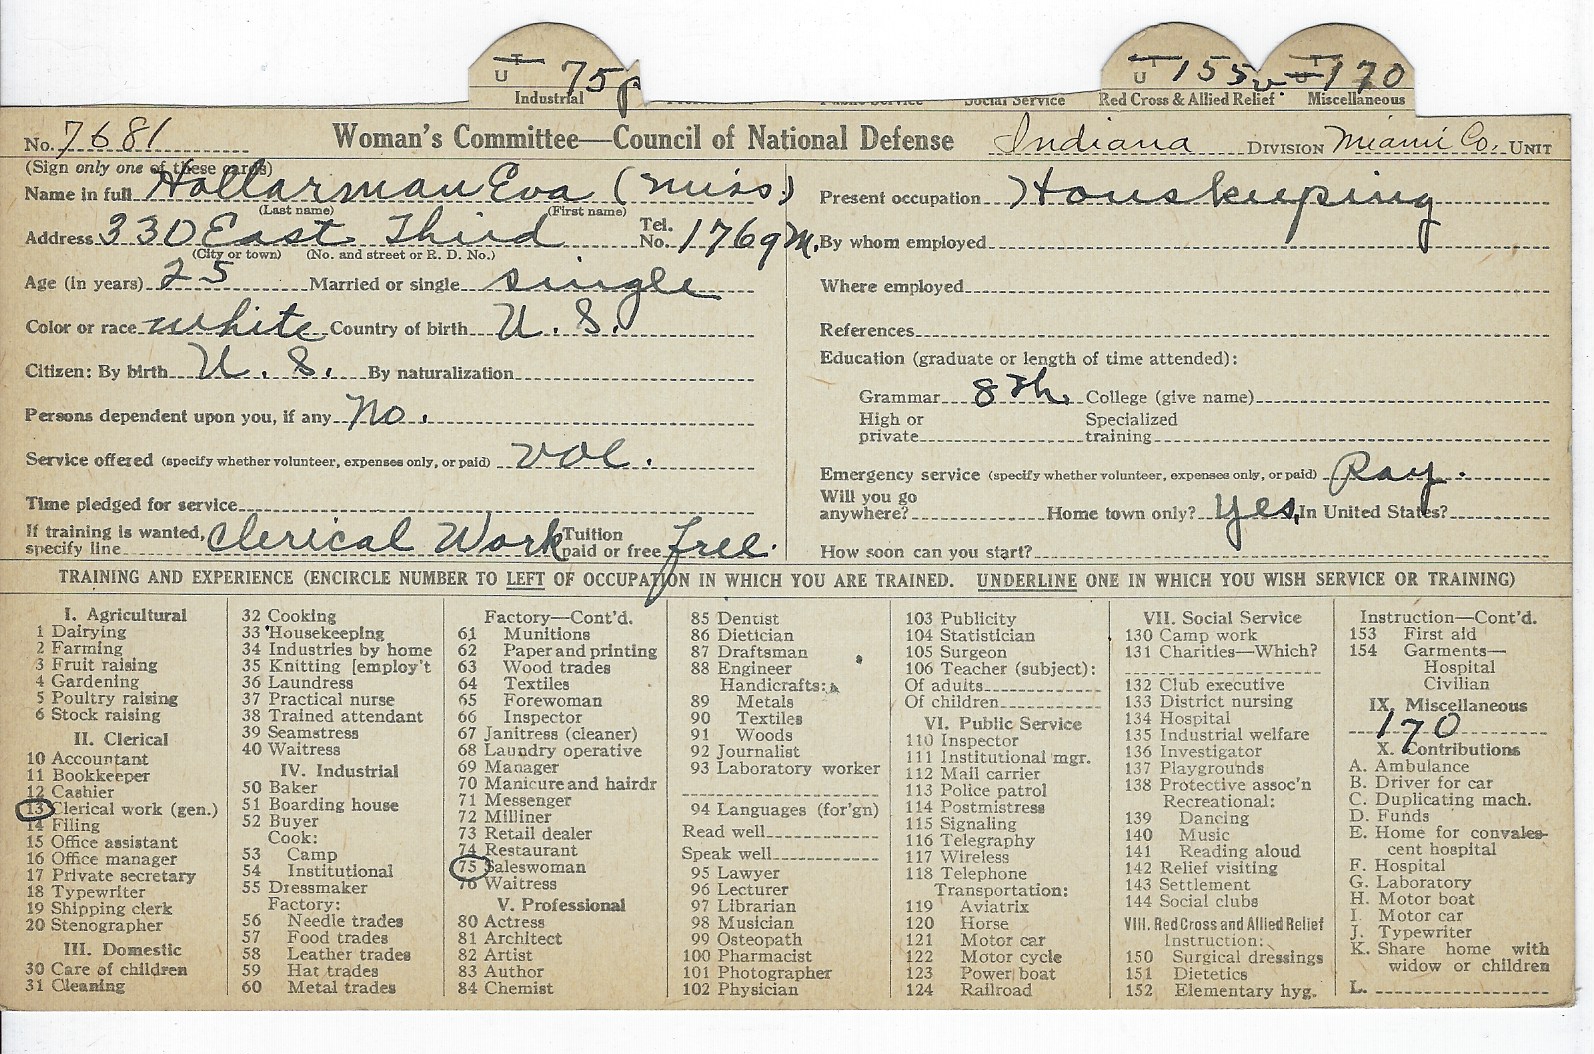 U T 75 p U T 155 v U T 170
Industrial Public Service Social Service Red Cross & Allied Relief Miscellaneous
No. 7681 Woman's Committee—Council of National Defense Indiana DIVISION Miami Co. UNIT
(Sign only one of these cards)
Name in full Hollarman Eva (Miss)
(Last name) (First name)
Address 330 East Third Tel. No. 1769 M.
(City or town) (No. and street or R. D. No.)
Age (in years) 25 Married or single single
Color or race white Country of birth U. S.
Citizen: By birth U. S. By naturalization
Persons dependent upon you, if any No.
Service offered (specify whether volunteer, expenses only, or paid) vol.
Time pledged for service
If training is wanted, specify line Clerical Work Tuition paid or free free.
Present occupation Houskeeping
By whom employed
Where employed
References
Education (graduate or length of time attended):
Grammar 8th College (give name)
High or private Specialized training
Emergency service (specify whether volunteer, expenses only, or paid) Pay.
Will you go anywhere? Home town only? Yes, In United States?
How soon can you start?
TRAINING AND EXPERIENCE (ENCIRCLE NUMBER TO LEFT OF OCCUPATION IN WHICH YOU ARE TRAINED. UNDERLINE ONE IN WHICH YOU WISH SERVICE OR TRAINING)
I. Agricultural
1 Dairying
2 Farming
3 Fruit raising
4 Gardening
5 Poultry raising
6 Stock raising
II. Clerical
10 Accountant
11 Bookkeeper
12 Cashier
13 Clerical work (gen.)
14 Filing
15 Office assistant
16 Office manager
17 Private secretary
18 Typewriter
19 Shipping clerk
20 Stenographer
III. Domestic
30 Care of children
31 Cleaning
32 Cooking
33 Housekeeping
34 Industries by home
35 Knitting [employ't
36 Laundress
37 Practical nurse
38 Trained attendant
39 Seamstress
40 Waitress
IV. Industrial
50 Baker
51 Boarding house
52 Buyer
Cook:
53 Camp
54 Institutional
55 Dressmaker
Factory:
56 Needle trades
57 Food trades
58 Leather trades
59 Hat trades
60 Metal trades
Factory—Cont'd.
61 Munitions
62 Paper and printing
63 Wood trades
64 Textiles
65 Forewoman
66 Inspector
67 Janitress (cleaner)
68 Laundry operative
69 Manager
70 Manicure and hairdr
71 Messenger
72 Milliner
73 Retail dealer
74 Restaurant
75 Saleswoman
76 Waitress
V. Professional
80 Actress
81 Architect
82 Artist
83 Author
84 Chemist
85 Dentist
86 Dietician
87 Draftsman
88 Engineer
Handicrafts:
89 Metals
90 Textiles
91 Woods
92 Journalist
93 Laboratory worker
94 Languages (for'gn)
Read well
Speak well
95 Lawyer
96 Lecturer
97 Librarian
98 Musician
99 Osteopath
100 Pharmacist
101 Photographer
102 Physician
103 Publicity
104 Statistician
105 Surgeon
106 Teacher (subject):
Of adults
Of children
VI. Public Service
110 Inspector
111 Institutional mgr.
112 Mail carrier
113 Police patrol
114 Postmistress
115 Signaling
116 Telegraphy
117 Wireless
118 Telephone
Transportation:
119 Aviatrix
120 Horse
121 Motor car
122 Motor cycle
123 Power boat
124 Railroad
VII. Social Service
130 Camp work
131 Charities—Which?
132 Club executive
133 District nursing
134 Hospital
135 Industrial welfare
136 Investigator
137 Playgrounds
138 Protective assoc'n
Recreational:
139 Dancing
140 Music
141 Reading aloud
142 Relief visiting
143 Settlement
144 Social clubs
VIII. Red Cross and Allied Relief
Instruction:
150 Surgical dressings
151 Dietetics
152 Elementary hyg.
Instruction—Cont'd.
153 First aid
154 Garments—
Hospital
Civilian
IX. Miscellaneous
170
X. Contributions
A. Ambulance
B. Driver for car
C. Duplicating mach.
D. Funds
E. Home for convales-
cent hospital
F. Hospital
G. Laboratory
H. Motor boat
I. Motor car
J. Typewriter
K. Share home with
widow or children
L.